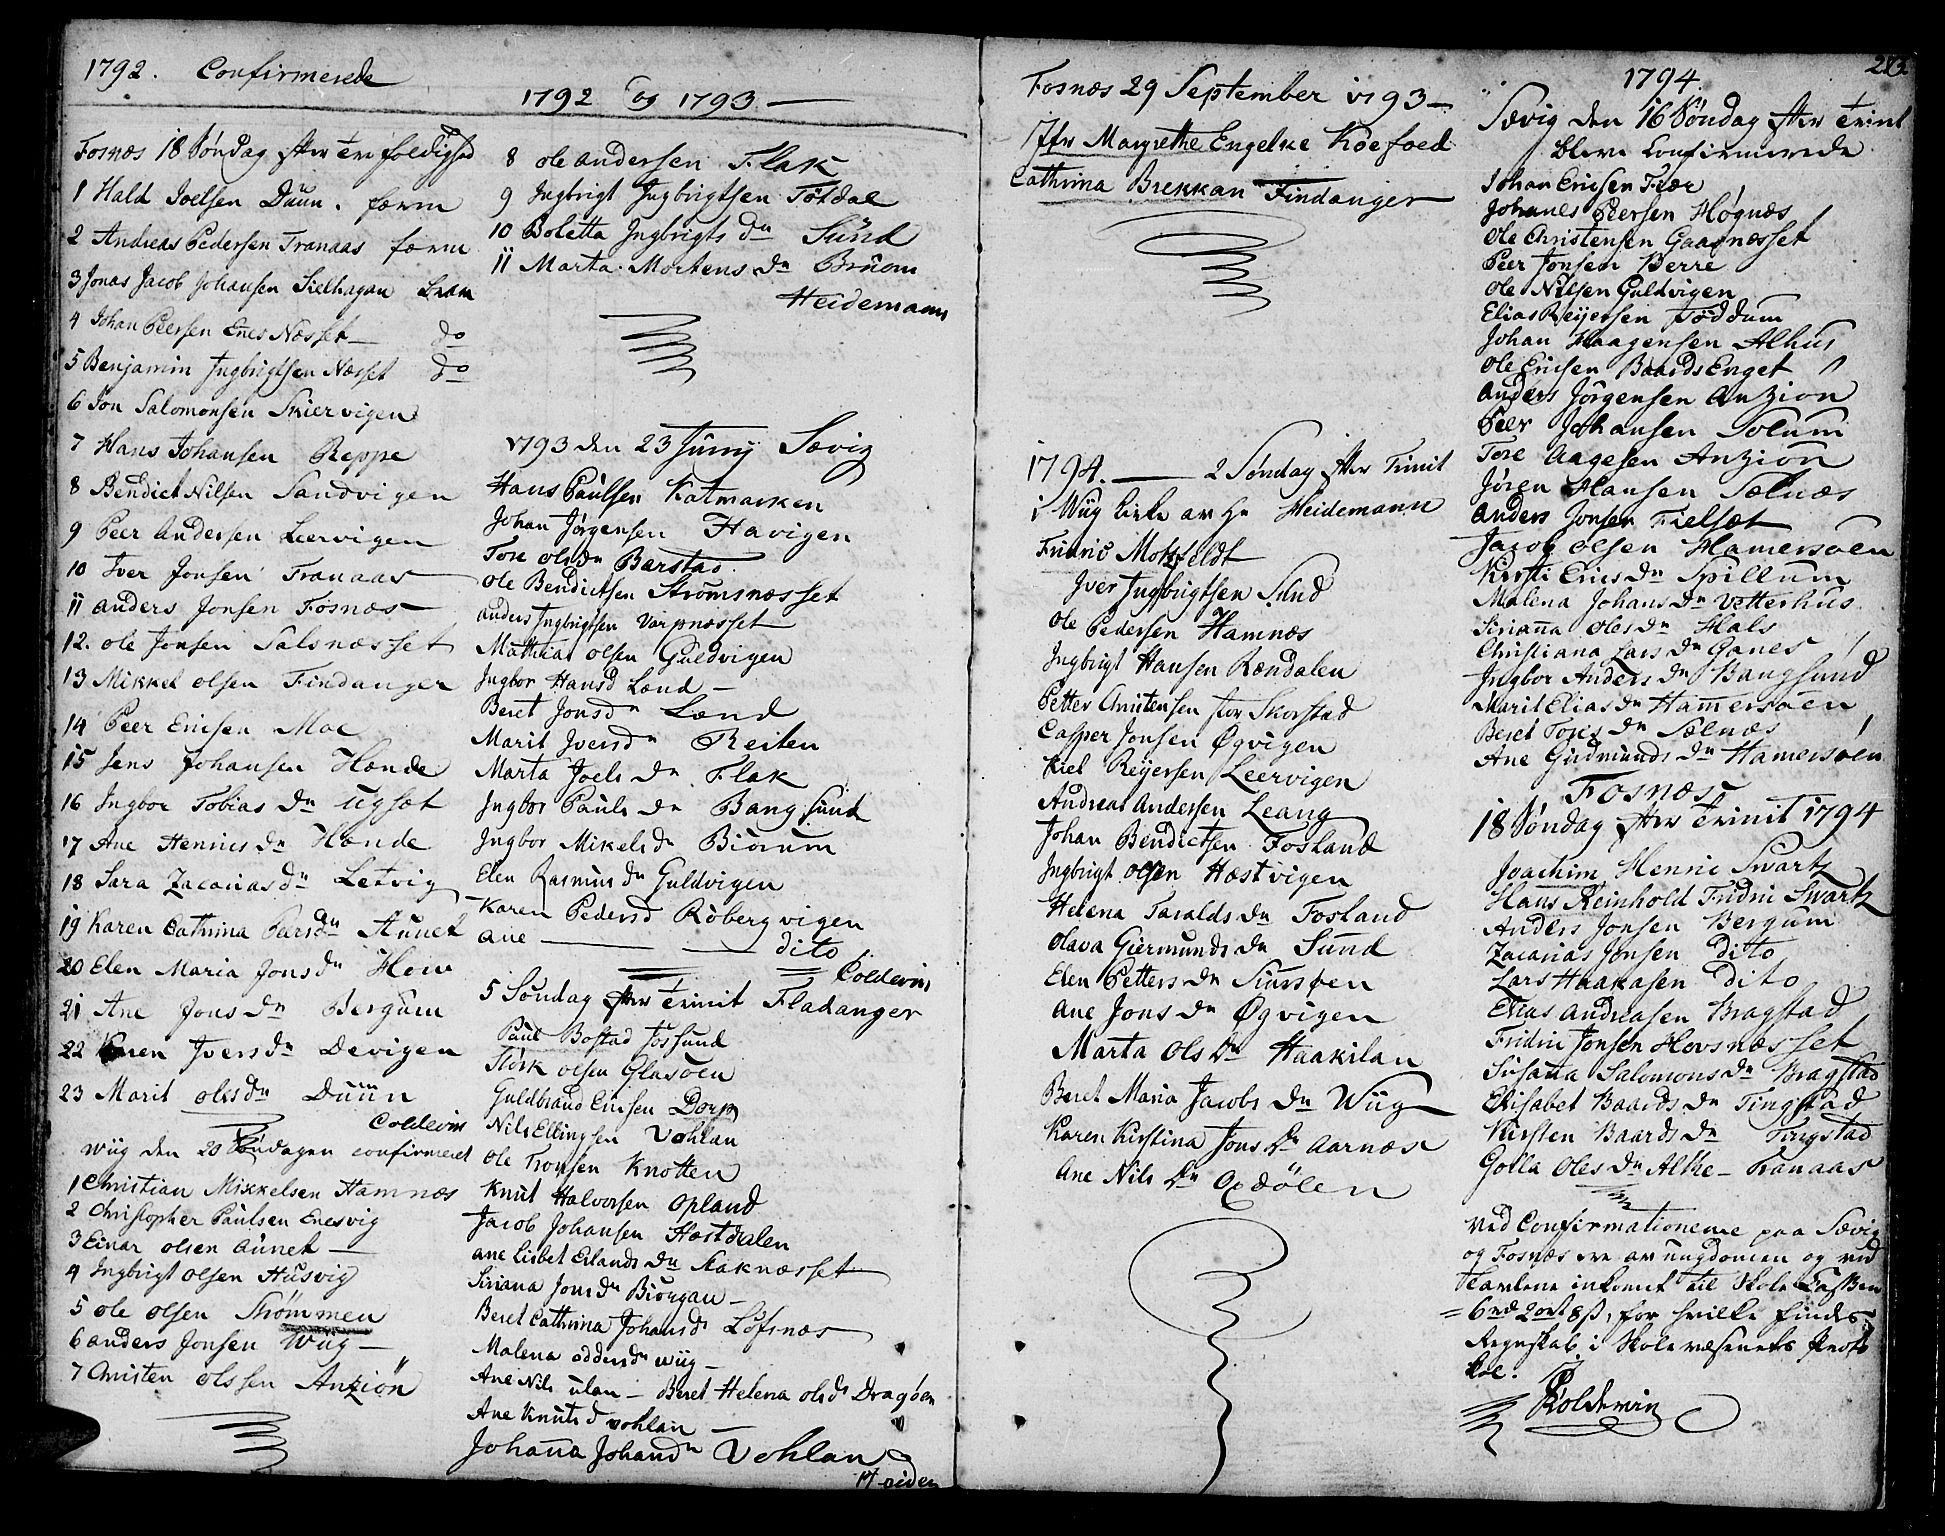 1792. Confirmerede
Fosnæs 18 Søndag efter Trefoldighed
1 Hald Joelsen Duun. færm
2 Andreas Pedersen Tranaas færm
3 Jonas Jacob Johansen Kielhagan
4 Johan Peersen Enes Næsset — do
5 Benjamin Jngbrigtsen Næsset do
6 Jon Salomonsen Skiervigen
7 Hans Johansen Reppe
8 Bendict Nilsen Sandvigen
9 Peer Andersen Leervigen
10 Jver Jonsen Tranaas
11 anders Jonsen Fosnæs —
12. ole Jonsen Salsnæsset
13 Mikkel olsen Findanger
14 Peer Ericsen Moe
15 Jens Johansen Hønde
16 Jngbor Tobias dn ugset
17 Ane Henrics dn Hønde
18 Sara Zacarias dn Letvig
19 Karen Cathrina Peersdn Aunet
20 Elen Maria Jonsdn How
21 Ane Jons dn Bergum
22 Karen Jversdn Devigen
23 Marit olesdn Duun
Coldevin
Wiig den 20 Søndagen confirmeret
1 Christian Mikkelsen Hamnæs
2 Christopher Paulsen Enesvig
3 Einar olsen Aunet —
4 Jngbrigt olsen Husvig
5 ole olsen Strømmen
6 anders Jonsen Wiig —
7 Christen olssen Anzion
1792 og 1793 —
8 ole andersen Flak
9 Jngbrigt Jngbrigtsen Tøtdal
10 Boletta Jngbrigts dn Sund
11 Marta Mortens dn Bruom
Heidemann
1793 den 23 Junij Sævig
Hans Paulsen Katmarken
Johan Jørgensen Havigen
Tore olsdn Barstad
Ole Bendictsen Strømsnæsset
anders Jngbrigtsen Varpnæsset
Mathias olsen Guldvigen
Jngbor Hansd Lænd —
Beret Jonsdn Lænd
Marit Jversdn Reiten
Marta Joels dn Flak
Jngbor Pauls dn Bangsund
Jngbor Mikelsdn Biørum
Elen Rasmus dn Guldvigen
Karen Pedersd Røbergvigen
Ane — dito
Coldevin
5 Søndag efter Trinit Fladanger
Paul Bostad Jøssund
Størk olsen Glasøen
Guldbrand Ericsen Dorp
Nils Ellingsen Vohlan
Ole Tronsen Knotten
Knut Halvorsen opland
Jacob Johansen Hostdalen
ane Lisbet Erlands dn Kaknæsset
Siriana Jonsdn Biørgan —
Beret Cathrina Johansd Løfsnæs
Malena oddersdn wiig —
Ane Nils ulan — Beret Helena olsd Dragøen
Ane Knutsd vohlan —
Johana Johansdn Vohlan
Fosnæs 29 September 1793 —
Jfr Margrethe Engelke Koefoed
Cathrina Brekkan Findanger
1794. — 2 Søndag efter Trinit
i Wiig kirke av hr Heidemann
Fridric Motzfeldt
Jver Jngbrigtsen Sund
Ole Pedersen Hamnæs
Jngbrigt Hansen Rændalen
Petter Christensen stor Skorstad
Casper Jonsen Øgvigen
Kiel Reyersen Leervigen
Andreas Andersen Leang
Johan Bendictsen Fosland
Jngbrigt olsen Hæstvigen
Helena Taralds dn Fosland
Olava Giermunds dn Sund
Elen Petters dn Siursøen
Ane Jons dn Øgvigen
Marta Ols dn Haakilan
Beret Maria Jacobs dn Wiig
Karen Kirstina Jons dn aarnæs
Ane Nils dn oxdølen
1794.
Sævig den 16 Søndag efter Trinit
bleve Confirmerede
Johan Ericsen Fiær
Johanes Peersen Høgnæs
Ole Christensen Gaasnæsset
Peer Jonsen Berre
Ole Nilsen Guldvigen
Elias Reyersen Føddum
Johan Haagensen Alhus
Ole Ericsen BaardsEnget
Anders Jørgensen Anzion
Peer Johansen Solum
Tore Aagesen Anzion
Jøren Hansen Sælnæs
Anders Jonsen Fielsæt
Jacob olsen Hamersøen
Kirsti Erics dn Spillum
Malena Johans dn Vetterhus
Sirianna Oles dn Hals
Christiana Lars dn Ganes
Jngbor Anders dn Bangsund
Marit Elias dn Hammersøen
Beret Tores dn Sælnæs
Ane Gudmunds dn Hamersøen
Fosnæs
18 Søndag efter Trinit 1794
Joachim Henric Swartz
Hans Reinhold Fridric Swartz
Anders Jonsen Bergum
Zacarias Jonsen Dito
Lars Haakasen Dito
Elias Andreasen Bragstad
Fridric Jonsen Hovsnæsset
Susana Salomons dn Bragstad
Elisabet Baards dn Tingstad
Kirsten Baards dn Tingstad
Golla Oles dn Alke — Tranaas
Ved Confirmationerne paa Sævig
og Fosnæs ere av ungdomen og ved
tavlene inkomet til Skole Cassen
= 6 rd 2 ort 8 s, for hvilke findes
Regnskab i Skolevæsenets Proto
kol.
Koldevin